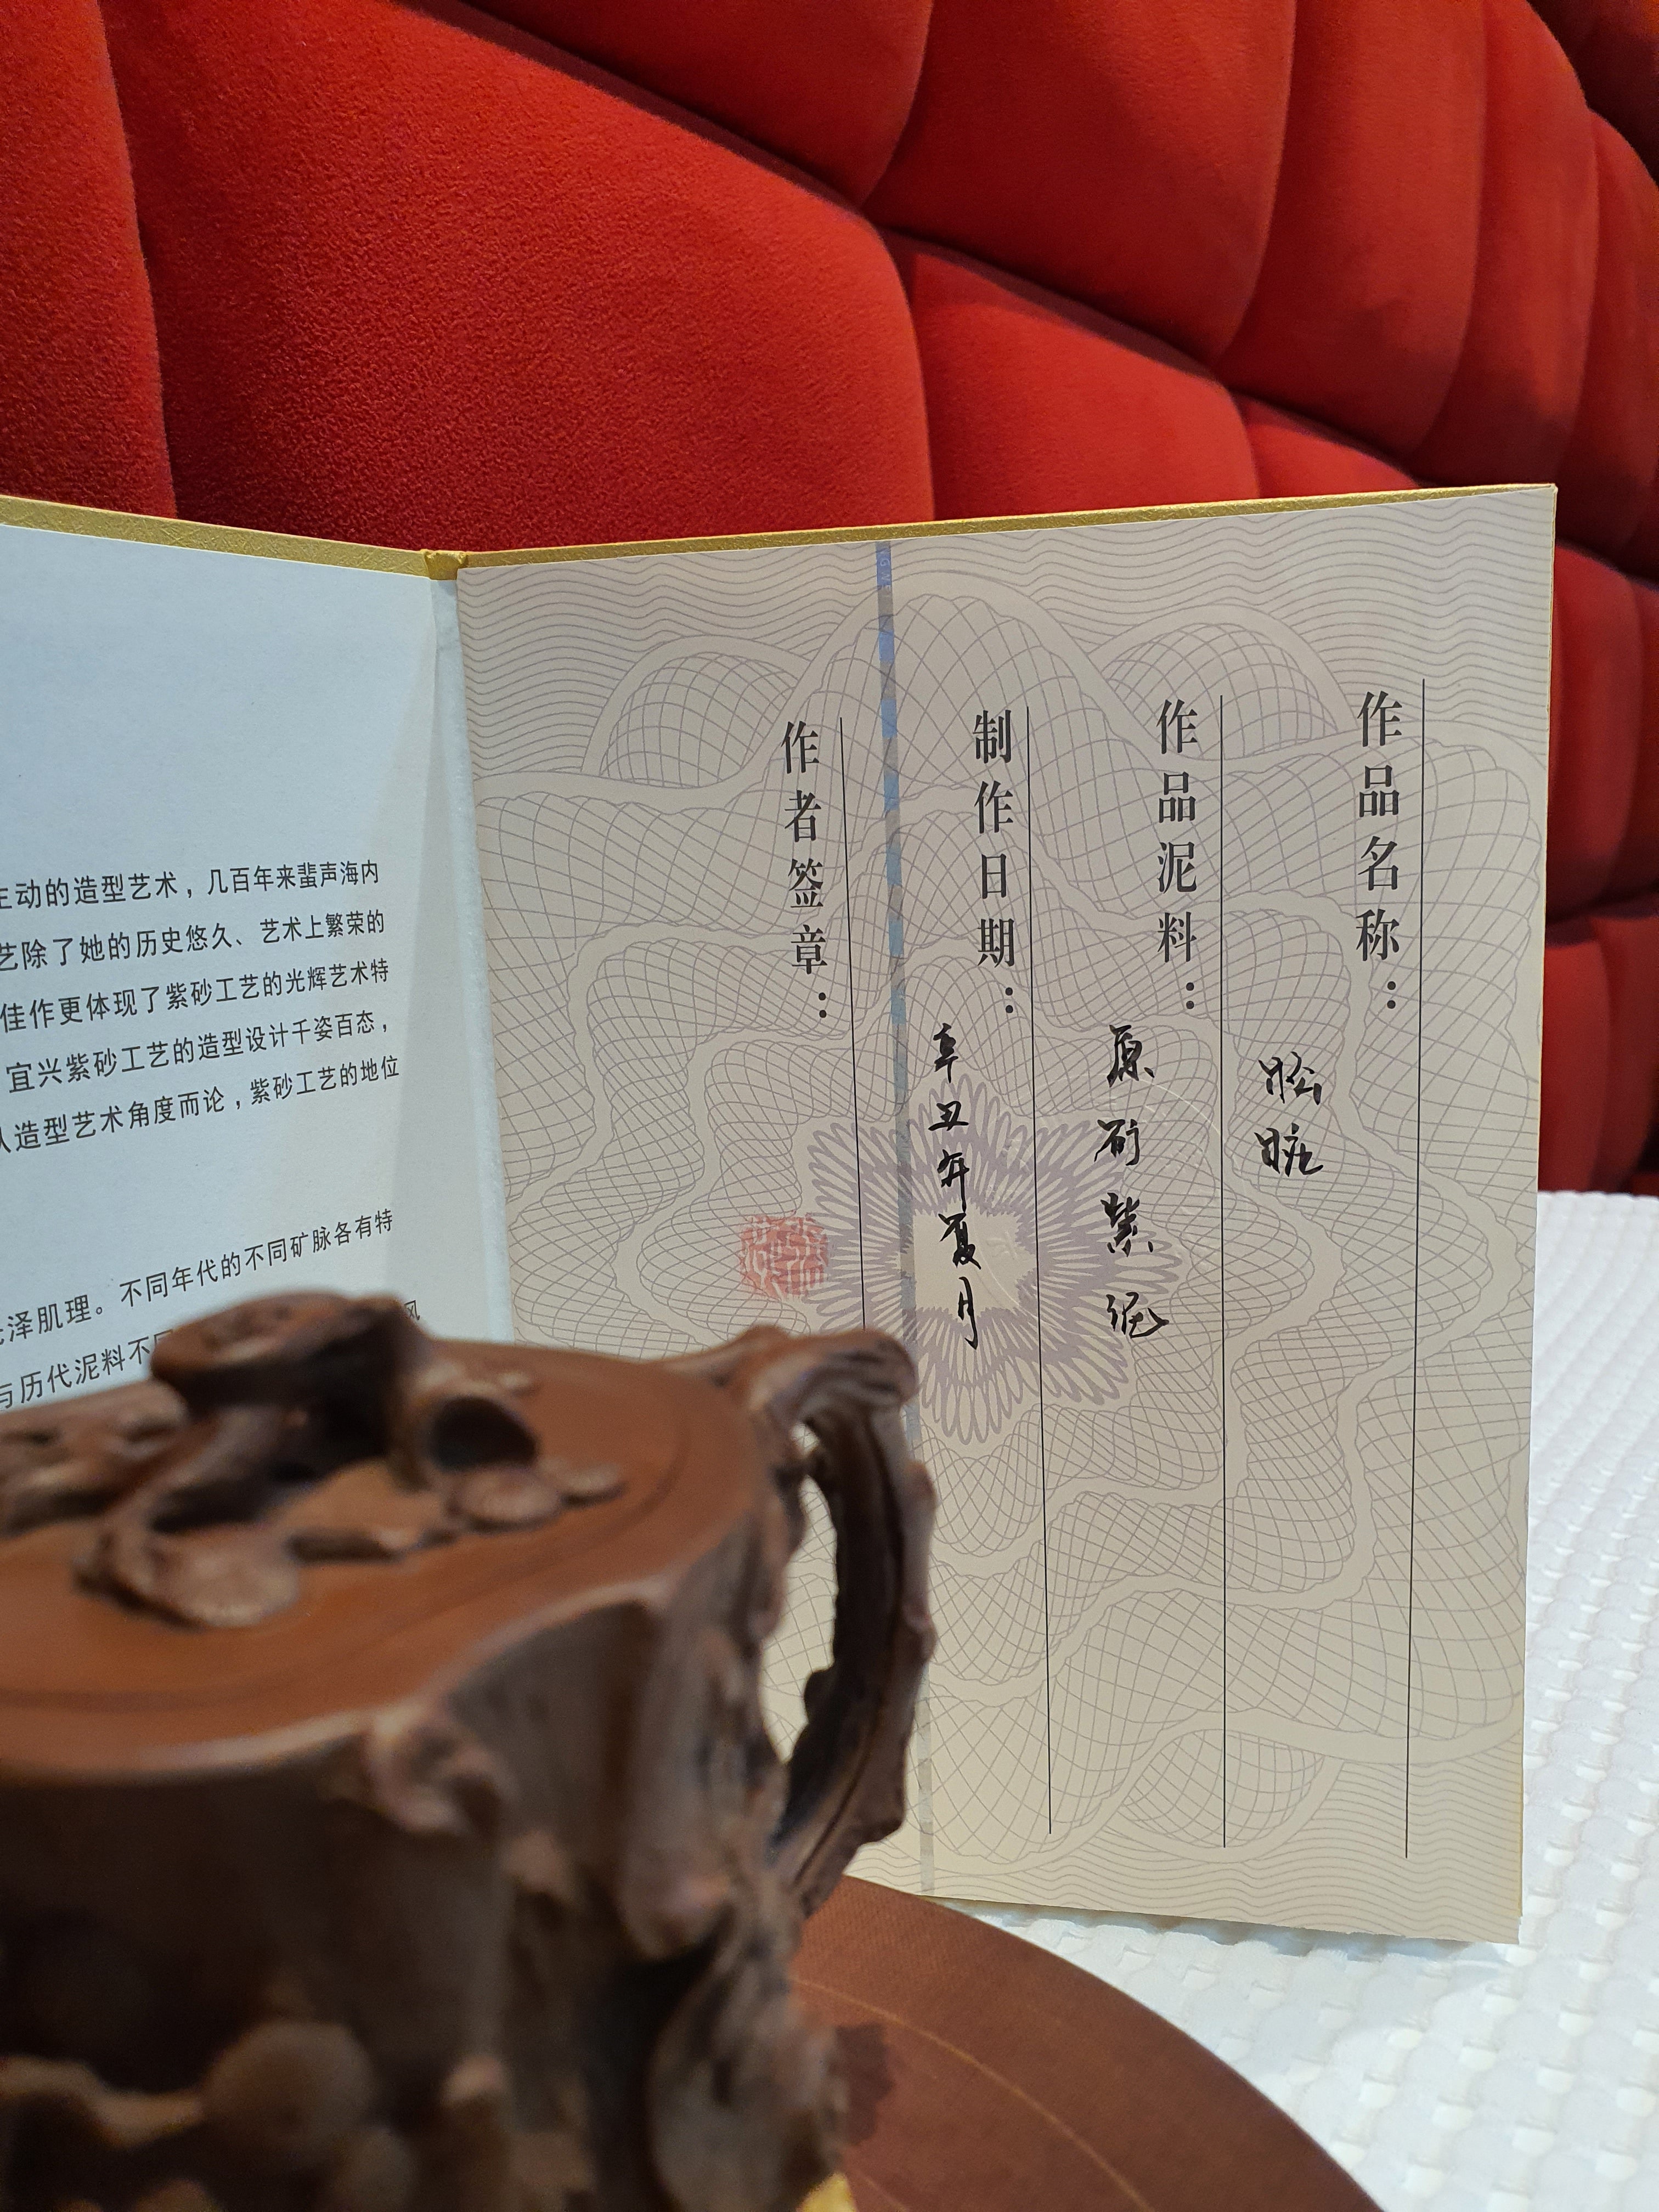 作品名称：
作品泥料：原矿紫泥
制作日期：辛丑年夏月
作者签章：
动的造型艺术，几百年来蜚声海内
艺除了她的历史悠久、艺术上繁荣的
佳作更体现了紫砂工艺的光辉艺术特
宜兴紫砂工艺的造型设计千姿百态，
造型艺术角度而论，紫砂工艺的地位
泽肌理。不同年代的不同矿脉各有特
与历代泥料不